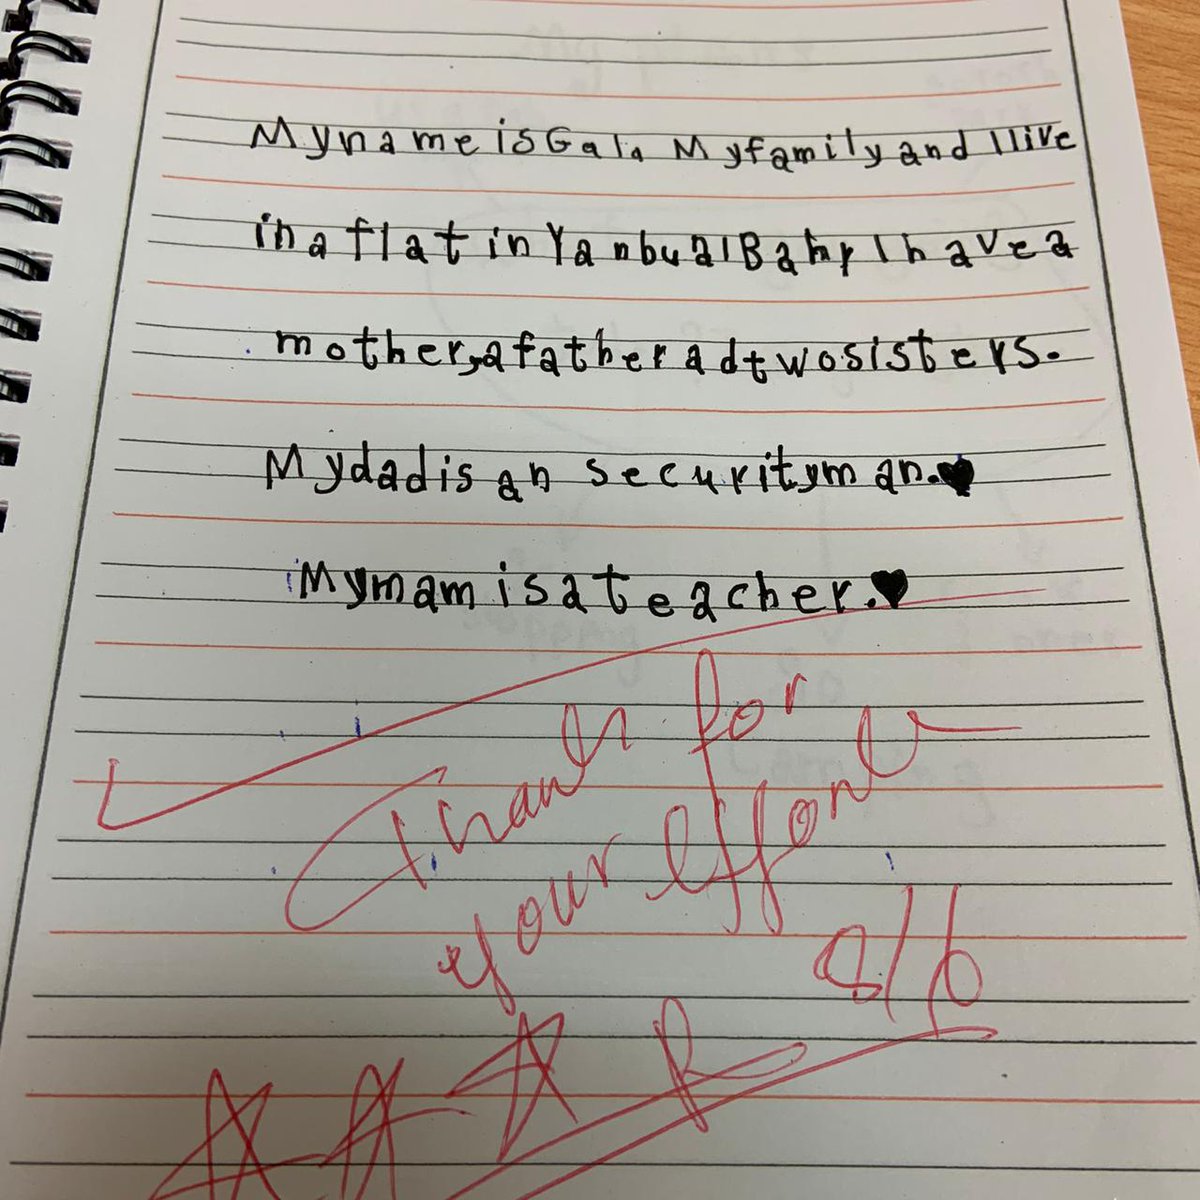 My name is Gala. My family and I live
in a flat in Yanbu al Bahr I have a
mother, a father ad two sisters.
My dad is an security man.
My mam is a teacher.
Thank for
your effort
8/6